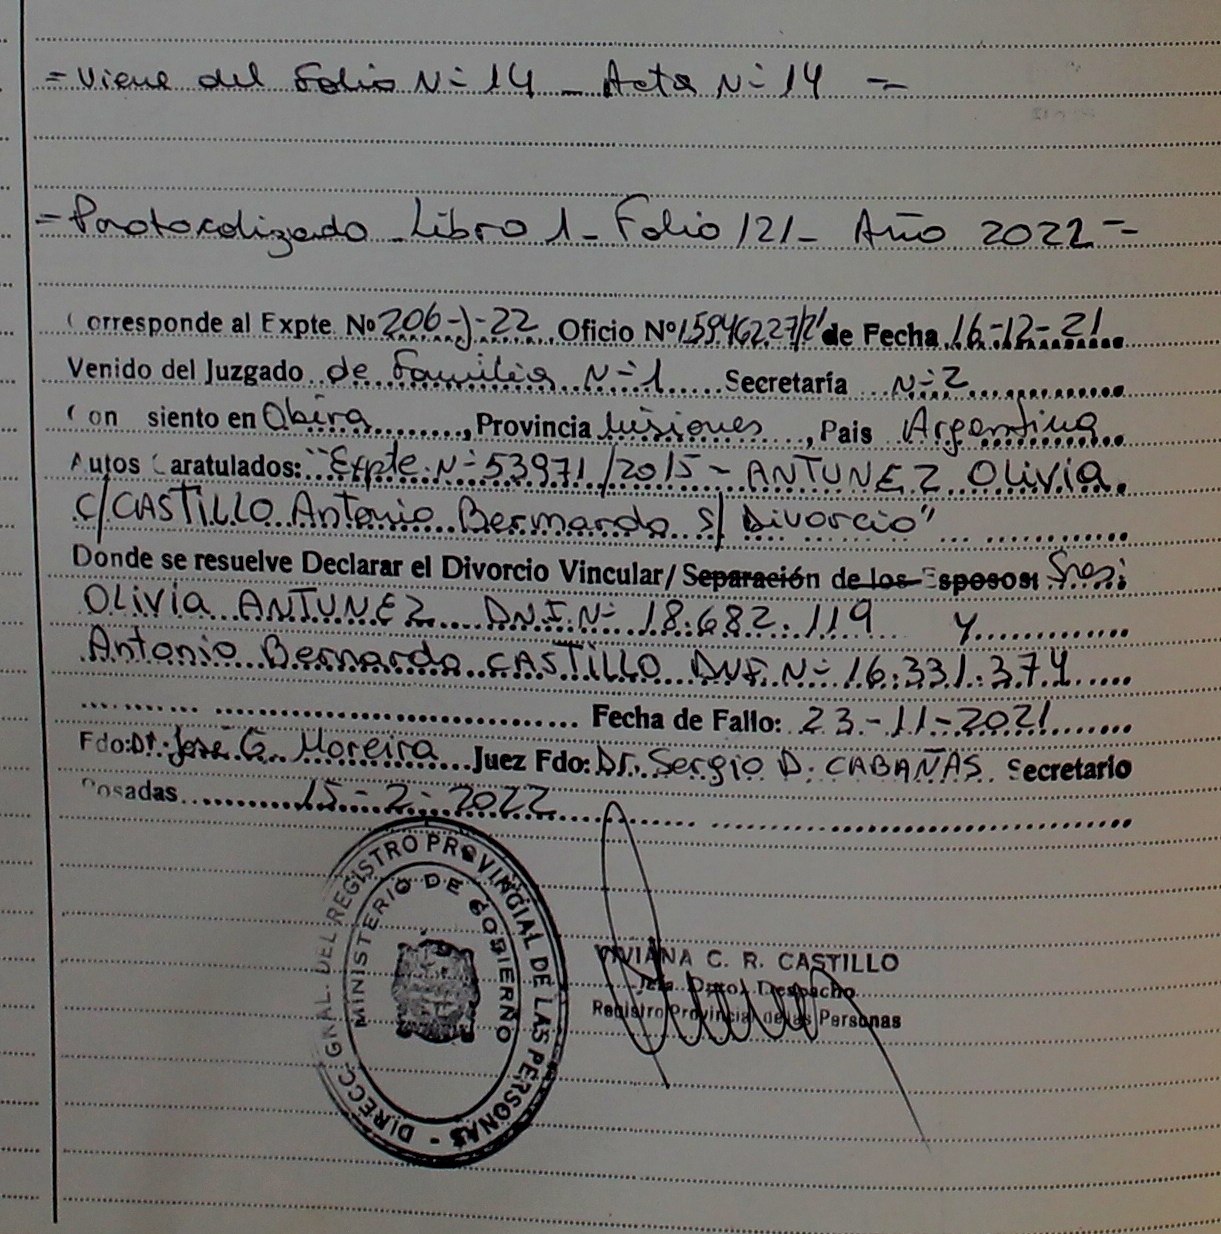 = Viene del Folio Nº 14 _ Acta Nº 14 =
= Protocolizado _ Libro 1 _ Folio 121 _ Año 2022 =
Corresponde al Expte. Nº 206-J-22 Oficio Nº 15946227/21 de Fecha 16-12-21
Venido del Juzgado de Familia Nº 1 Secretaría Nº 2
Con siento en Obera, Provincia Misiones, Pais Argentina
Autos Caratulados: "Expte. Nº 53971/2015 - ANTUNEZ Olivia
c/ CASTILLO Antonio Bernardo s/ Divorcio"
Donde se resuelve Declarar el Divorcio Vincular/ Separación de los Esposos: Sres:
Olivia ANTUNEZ D.N.I. Nº 18.682.119 y
Antonio Bernardo CASTILLO DNI. Nº 16.331.374
Fecha de Fallo: 23-11-2021
Fdo: Dr. José G. Moreira Juez Fdo: Dr. Sergio D. CABAÑAS Secretario
Posadas 15-2-2022
DIRECC. GRAL. DEL REGISTRO PROVINCIAL DE LAS PERSONAS -
MINISTERIO DE GOBIERNO
VIVIANA C. R. CASTILLO
Jefa Dpto. Despacho
Registro Provincial de las Personas